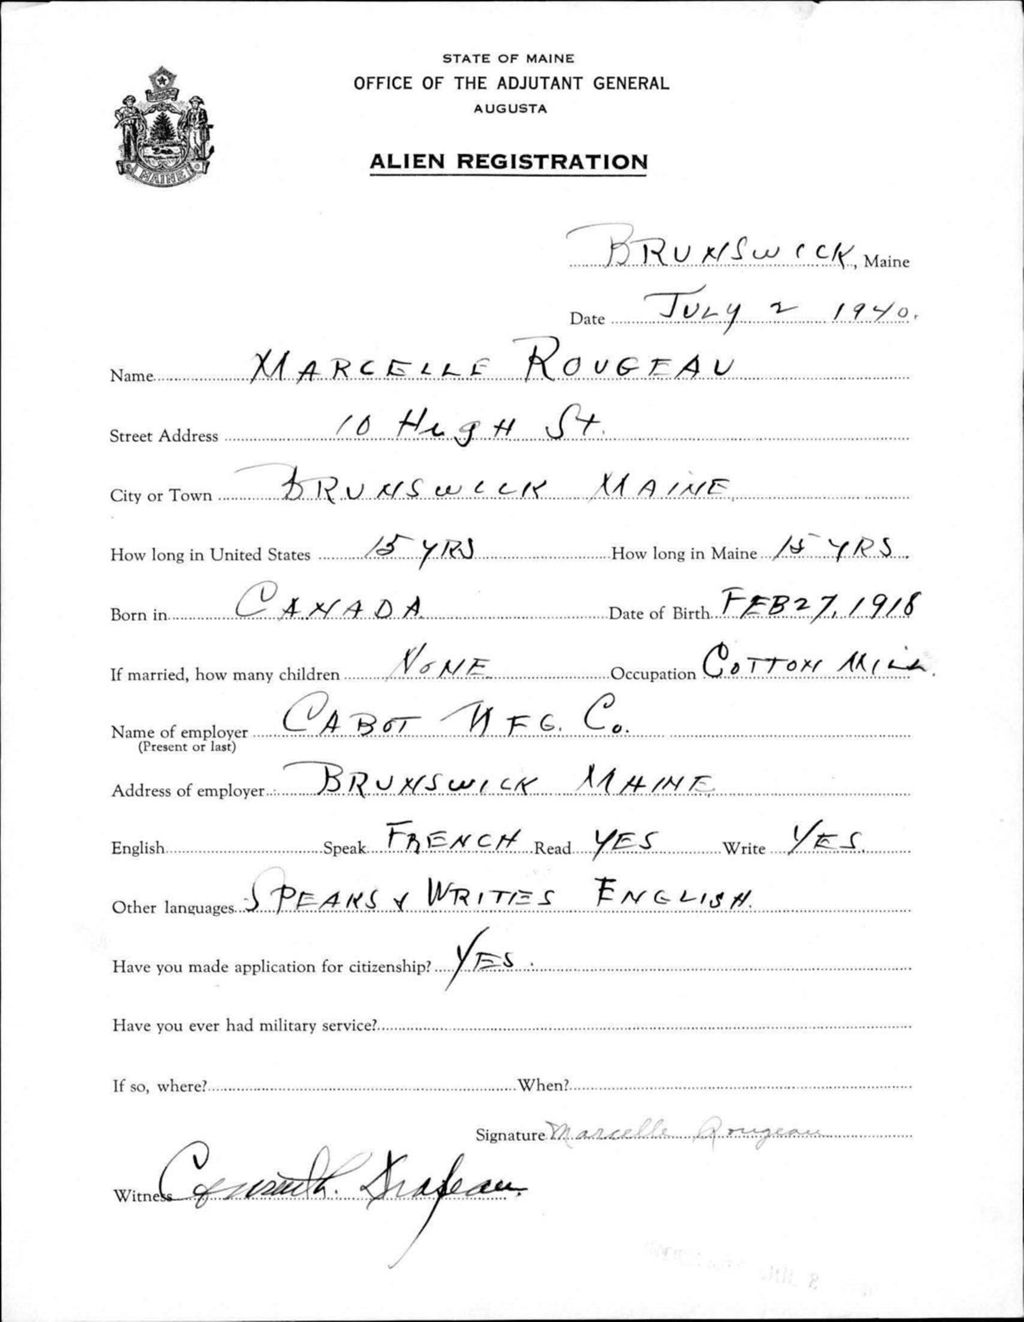 STATE OF MAINE
OFFICE OF THE ADJUTANT GENERAL
AUGUSTA
ALIEN REGISTRATION
MAINE
BRUNSWICK, Maine
Date JULY 2 1940.
Name MARCELLE ROUGEAU
Street Address 10 HIGH St.
City or Town BRUNSWICK MAINE
How long in United States 15 YRS How long in Maine 15 YRS.
Born in CANADA Date of Birth FEB 27, 1918
If married, how many children NONE Occupation COTTON MILL.
Name of employer CABOT MFG. Co.
(Present or last)
Address of employer BRUNSWICK MAINE
English Speak FRENCH Read YES Write YES.
Other languages SPEAKS & WRITIES ENGLISH.
Have you made application for citizenship? YES.
Have you ever had military service?
If so, where? When?
Signature Marcelle Rougeau
Witness Drapeau.